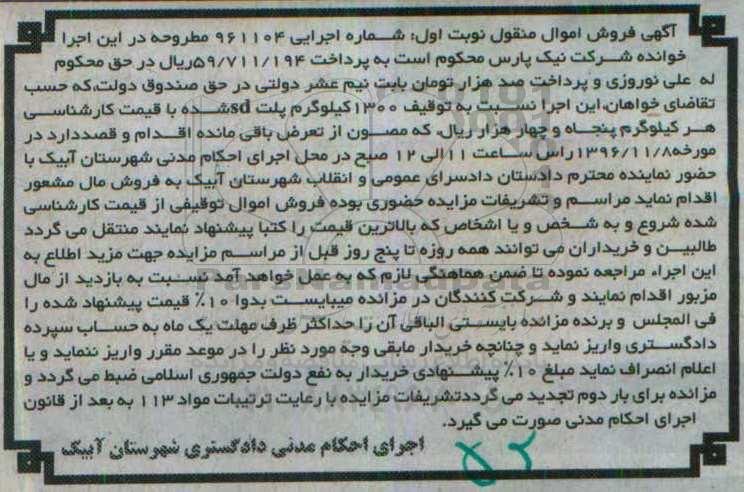 آگهی فروش اموال منقول نوبت اول: شماره اجرایی ۹۶۱۱۰۴ مطروحه در این اجرا
خوانده شرکت نیک پارس محکوم است به پرداخت ۵۹/۷۱۱/۱۹۴ریال در حق محکوم
له علی نوروزی و پرداخت صد هزار تومان بابت نیم عشر دولتی در حق صندوق دولت،که حسب
تقاضای خواهان،این اجرا نسبت به توقیف ۱۳۰۰کیلوگرم پلت sdشده با قیمت کارشناسی
هر کیلوگرم پنجاه و چهار هزار ریال، که مصون از تعرض باقی مانده اقدام و قصددارد در
مورخه۱۳۹۶/۱۱/۸راس ساعت ۱۱الی ۱۲ صبح در محل اجرای احکام مدنی شهرستان آبیک با
حضور نماینده محترم دادستان دادسرای عمومی و انقلاب شهرستان آبیک به فروش مال مشعور
اقدام نماید مراسم و تشریفات مزایده حضوری بوده فروش اموال توقیفی از قیمت کارشناسی
شده شروع و به شخص و یا اشخاص که بالاترین قیمت را کتبا پیشنهاد نمایند منتقل می گردد
طالبین و خریداران می توانند همه روزه تا پنج روز قبل از مراسم مزایده جهت مزید اطلاع به
این اجراء مراجعه نموده تا ضمن هماهنگی لازم که به عمل خواهد آمد نسبت به بازدید از مال
مزبور اقدام نمایند و شرکت کنندگان در مزائده میبایست بدوا ۱۰٪ قیمت پیشنهاد شده را
فی المجلس و برنده مزائده بایستی الباقی آن را حداکثر ظرف مهلت یک ماه به حساب سپرده
دادگستری واریز نماید و چنانچه خریدار مابقی وجه مورد نظر را در موعد مقرر واریز ننماید و یا
اعلام انصراف نماید مبلغ ۱۰٪ پیشنهادی خریدار به نفع دولت جمهوری اسلامی ضبط می گردد و
مزائده برای بار دوم تجدید می گرددتشریفات مزایده با رعایت ترتیبات مواد ۱۱۳ به بعد از قانون
اجرای احکام مدنی صورت می گیرد.
اجرای احکام مدنی دادگستری شهرستان آبیک
ParsNamadData